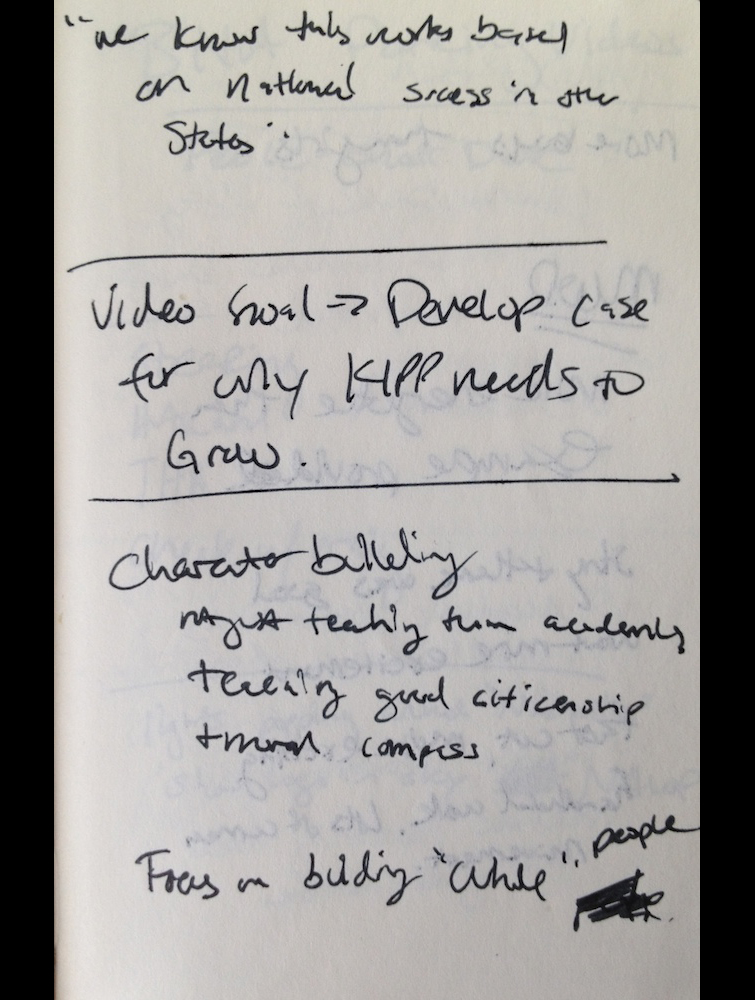 "we know this works based
on national success in other
States".
Video Goal → Develop case
for why KIPP needs to
Grow.
Character building
not just teaching them academics,
teaching good citizenship
+ moral compass
Focus on building "whole" people